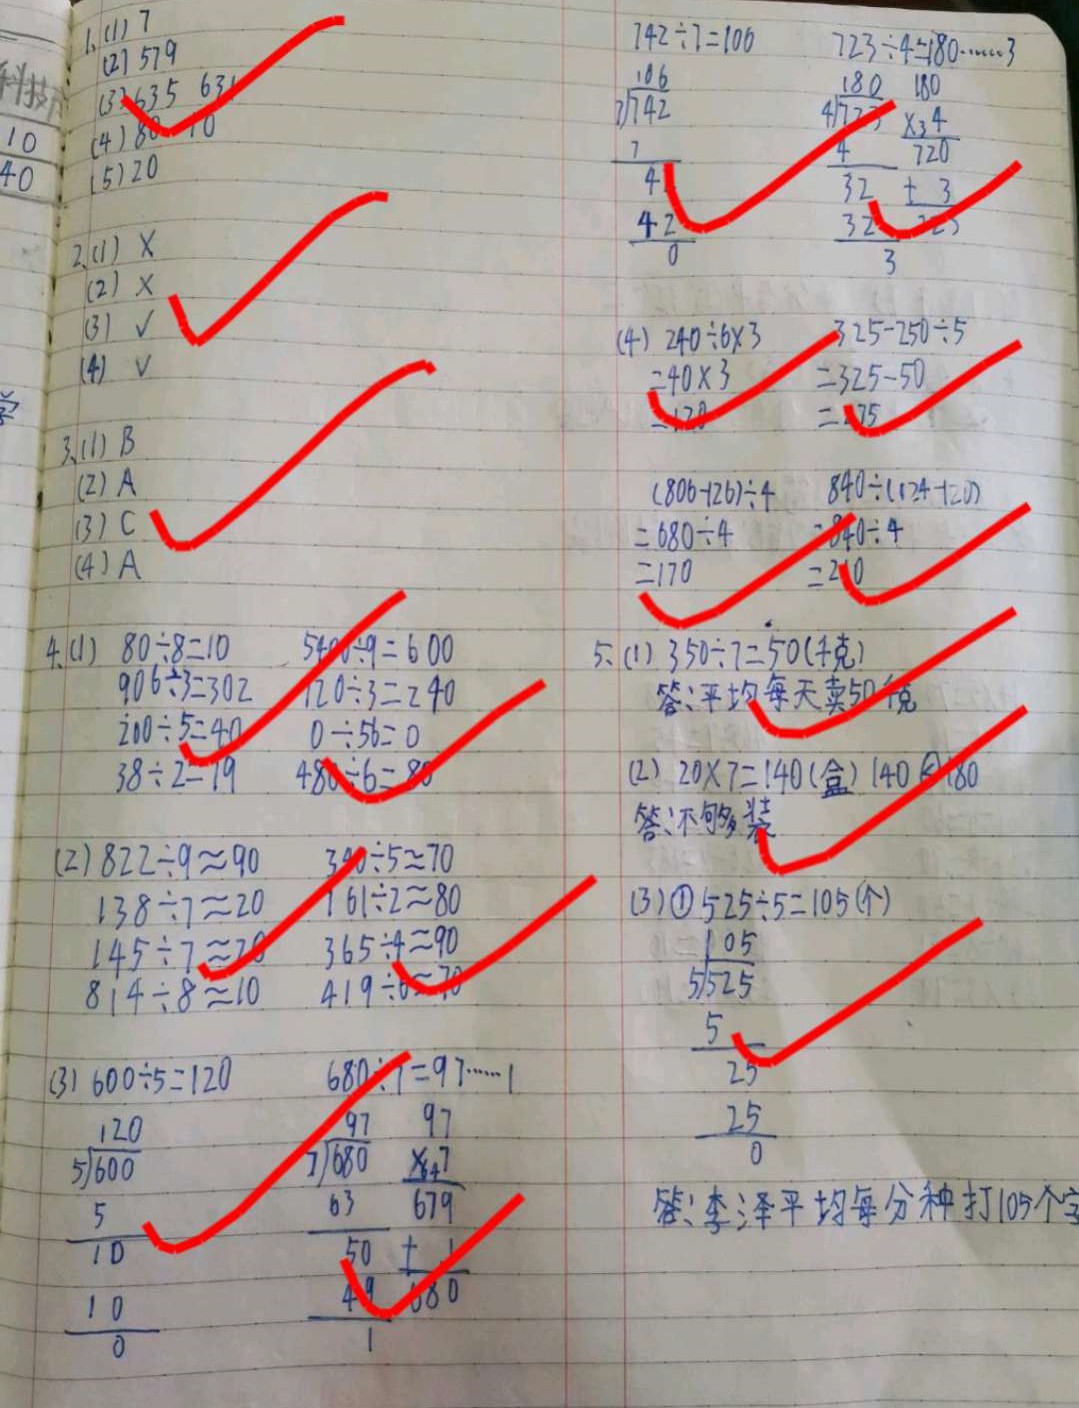 科技
10
40
学
1.(1) 7
(2) 579
(3) 635 631
(4) 80 10
(5) 20
2.(1) ×
(2) ×
(3) √
(4) √
3.(1) B
(2) A
(3) C
(4) A
4.(1) 80÷8=10 5400÷9=600
906÷3=302 720÷3=240
200÷5=40 0÷56=0
38÷2=19 480÷6=80
(2) 822÷9≈90 340÷5≈70
138÷7≈20 161÷2≈80
145÷7≈20 365÷4≈90
814÷8≈10 419÷6≈70
(3) 600÷5=120 680÷7=97……1
120 97 97
5)600 7)680 ×47
5 63 679
10 50 + 1
10 49 680
0 1
742÷7=106 723÷4=180……3
106 180 180
7)742 4)723 ×34
7 4 720
4 32 + 3
42 32 723
0 3
(4) 240÷6×3 325-250÷5
=40×3 =325-50
=120 =275
(806-126)÷4 840÷(124-120)
=680÷4 =840÷4
=170 =210
5.(1) 350÷7=50(千克)
答:平均每天卖50千克
(2) 20×7=140(盒) 140<180
答:不够装
(3)① 525÷5=105(个)
105
5)525
5
25
25
0
答:李泽平均每分种打105个字